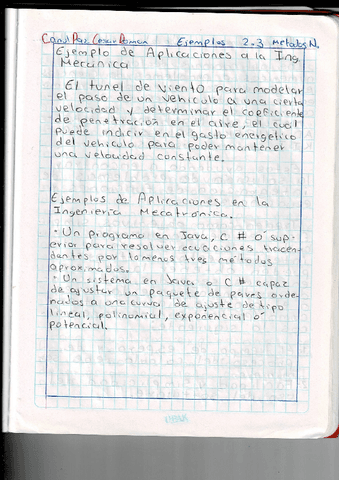 Canul Paz Cesar Roman | Ejemplos 2.3 Metodos N.
Ejemplo de Aplicaciones a la Ing
Mecánica
El tunel de viento para modelar
el paso de un vehiculo a una cierta
velocidad y determinar el coeficiente
de penetración en el aire, el cual
puede indicir en el gasto energético
del vehiculo para poder mantener
una velocidad constante.
Ejemplos de Aplicaciones en la
Ingeniería Mecatronica.
· Un programa en Java, C # ó sup-
erior para resolver ecuaciones tracen-
dantes por lomenos tres métodos
aproximados.
· Un sistema en Java o C # capaz
de ajustar un paquete de pares orde-
nados a una curva de ajuste de tipo
lineal, polinomial, exponencial ó
potencial.